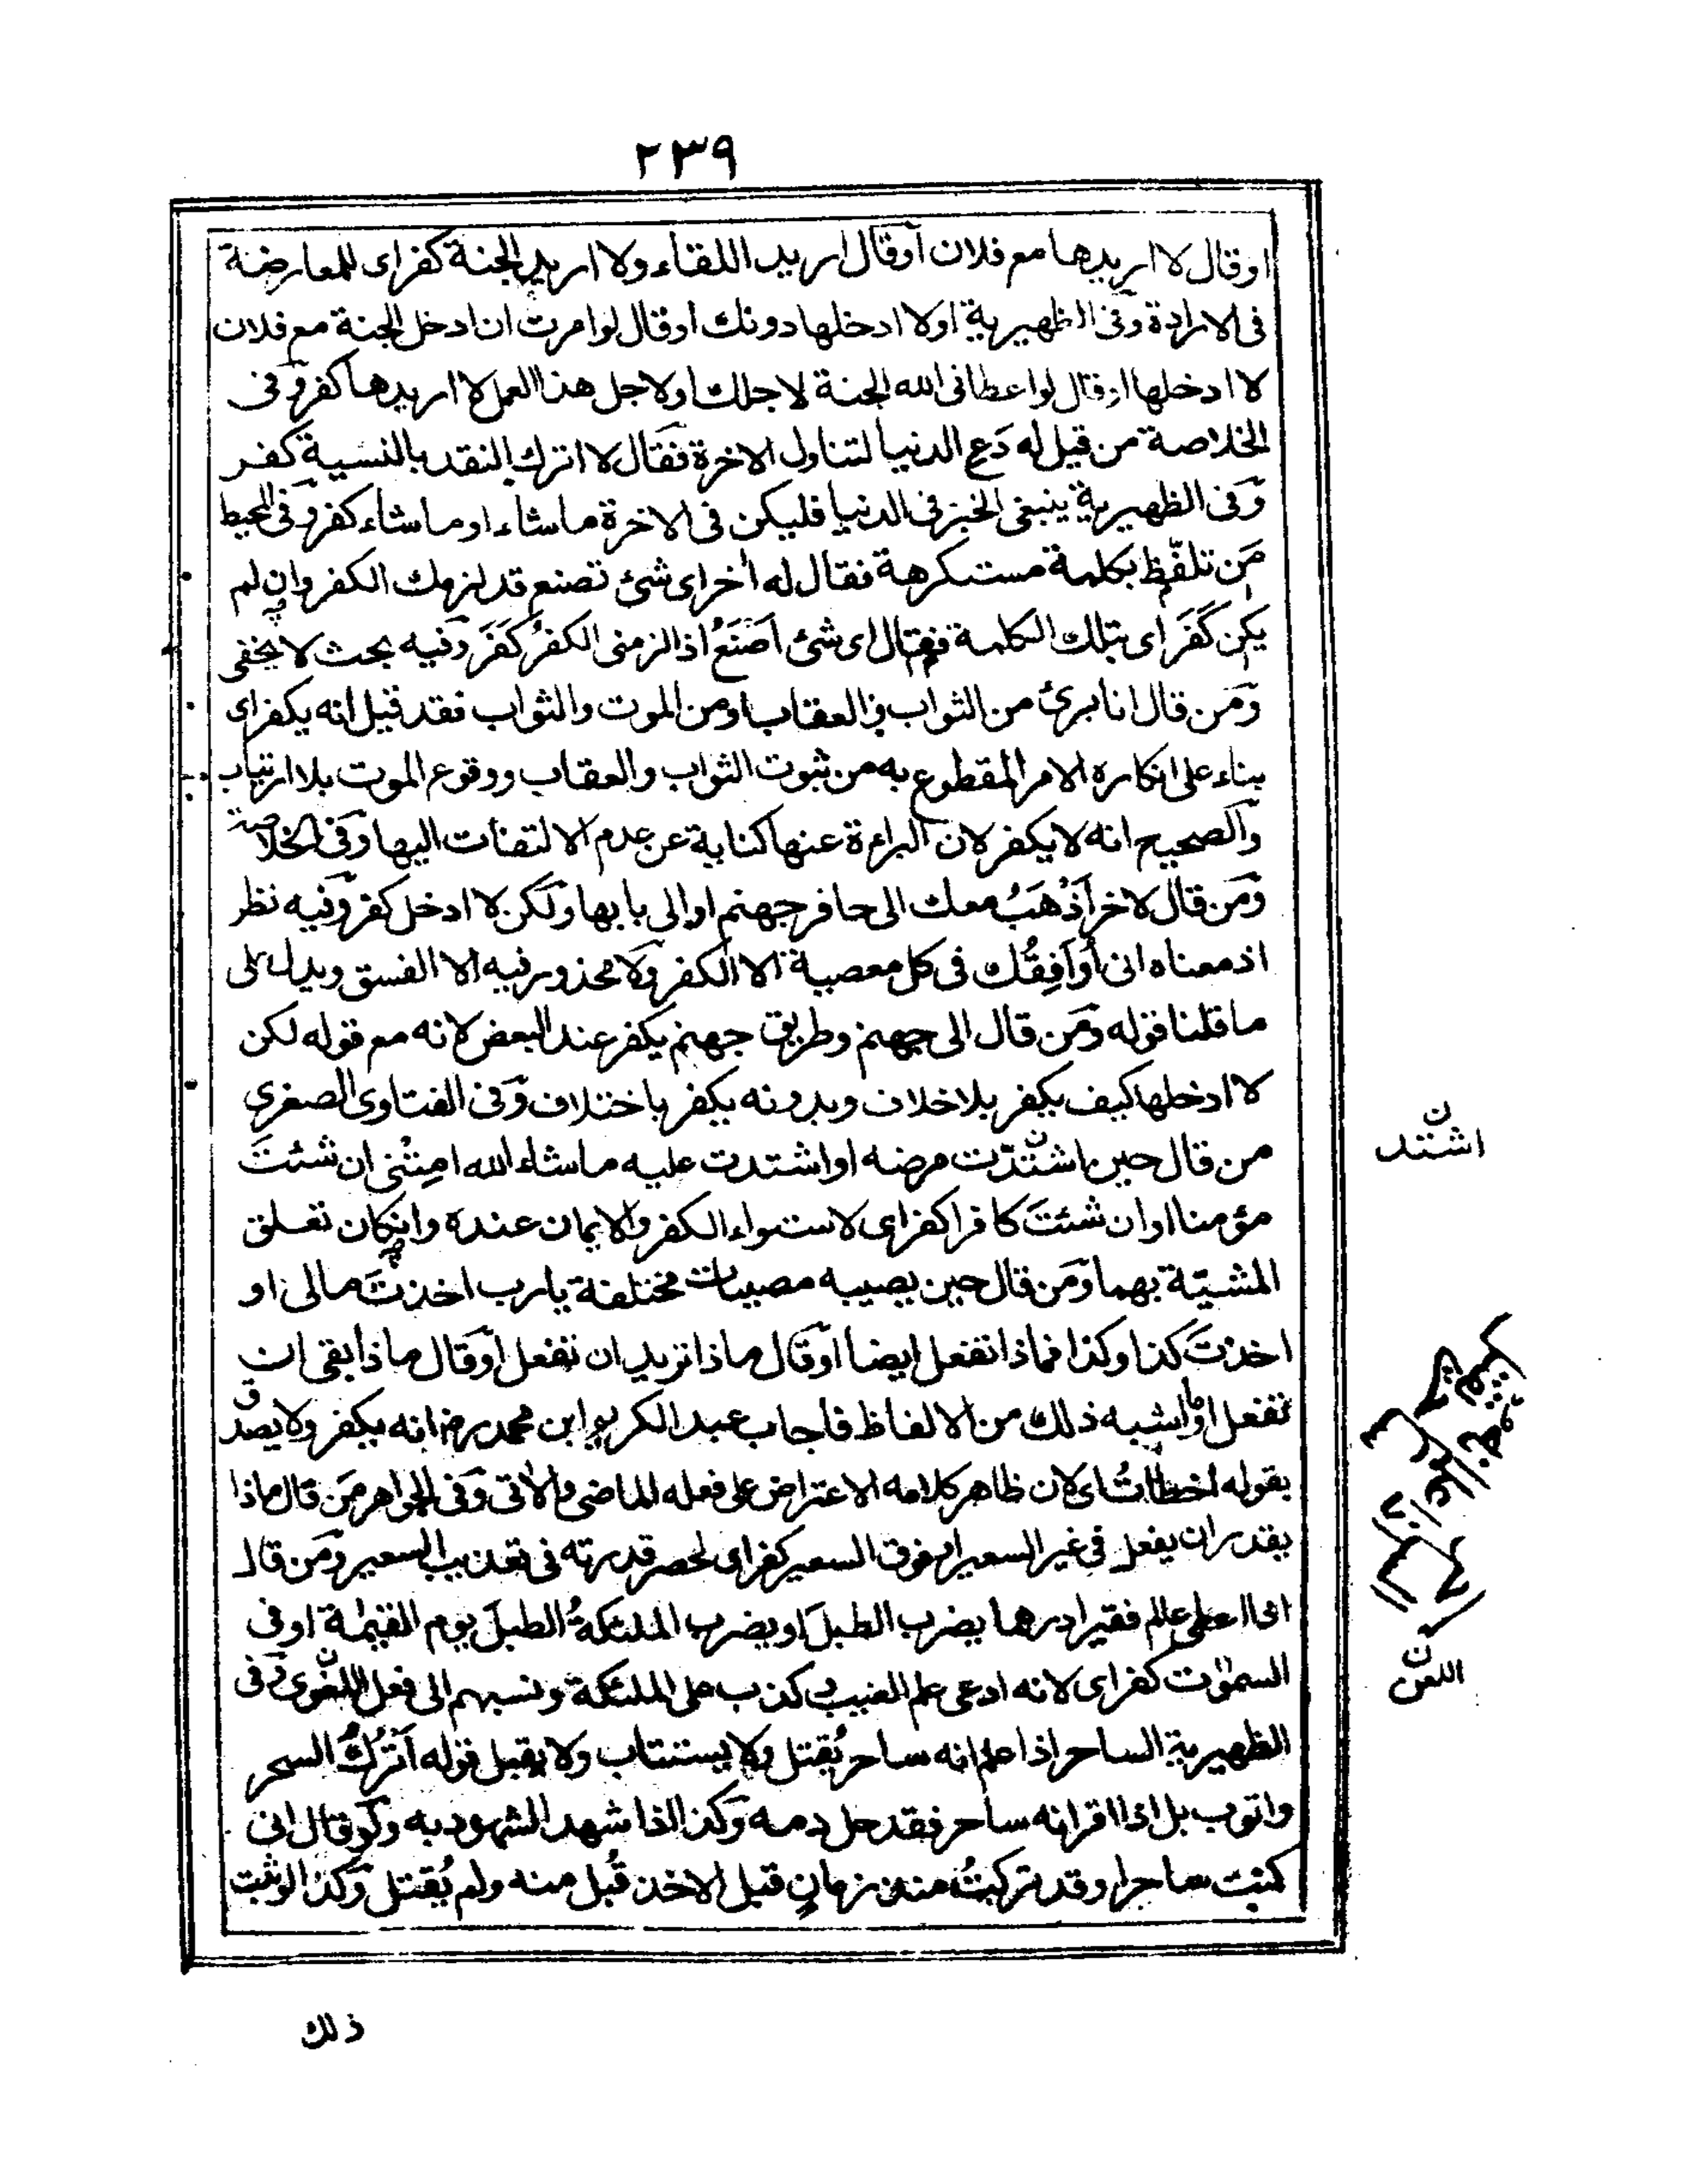 ٢٣٩
او قال لا اريدها مع فلان أو قال اريد اللقاء ولا اريد الجنة كفر اى للمعارضة
فى الارادة وفى الظهيرية اولا ادخلها دونك او قال لو امرت ان ادخل الجنة مع فلان
لا ادخلها او قال لو اعطانى الله الجنة لاجلك او لاجل هذا العمل لا اريدها كفر وفى
الخلاصة من قيل له دَعِ الدنيا لتناول الاخرة فقال لا اترك النقد بالنسية كفر
وفى الظهيرية ينبغى الخبز فى الدنيا فليكن فى الاخرة ما شاء او ما شاء كفر وفى المحيط
مَن تلفّظ بكلمة مستكرهة فقال له اخر اى شئ تصنع قد لزمك الكفر وان لم
يكن كَفَرَ اى بتلك الكلمة فقال اى شئ اَصْنَعُ اذا لزمنى الكفرُ كَفَرَ وفيه بحث لا يخفى
ومَن قال انا برئ من الثواب والعقاب او من الموت والثواب فقد قيل انه يكفر اى
بناء على انكاره الامر المقطوع به من ثبوت الثواب والعقاب ووقوع الموت بلا ارتياب
والصحيح انه لا يكفر لان البراءة عنها كناية عن عدم الالتفات اليها وفى الخلاصة
ومَن قال لاخر اَذْهَبُ معك الى حافر جهنم او الى بابها ولكن لا ادخل كفر وفيه نظر
اذ معناه انى اُوَافِقُك فى كل معصية الا الكفر ولا محذور فيه الا الفسق ويدل على
ما قلنا قوله ومَن قال الى جهنم وطريق جهنم يكفر عند البعض لانه مع قوله لكن
لا ادخلها كيف يكفر بلا خلاف وبدونه يكفر باختلاف وفى الفتاوى الصغرى
من قال حين اشتدّت مرضه او اشتدت عليه ما شاء الله امِتْنى ان شئتَ
مؤمنا او ان شئتَ كافرا كفر اى لاستواء الكفر والايمان عنده وان كان تعلق
المشيّة بهما ومَن قال حين يصيبه مصيبات مختلفة يا رب اخذتَ مالى او
اخذتَ كذا وكذا فماذا تفعل ايضا أو قال ماذا تريد ان تفعل او قال ماذا بقى ان
تفعل او ما اشبه ذلك من الالفاظ فاجاب عبد الكريم ابن محمد رض انه يكفر ولا يصدق
بقوله اخطأتُ اى لان ظاهر كلامه الاعتراض على فعله الماضى والاتى وفى الجواهر مَن قال ماذا
يقدر ان يفعل فى غير السعير او فوق السعير كفر اى لحصر قدرته فى تعذيب السعير ومَن قال
اذا اعطى عالم فقيرا درهما يضرب الطبلَ او يضرب الملئكةُ الطبلَ يوم القيمة او فى
السموات كفر اى لانه ادعى علم الغيب وكذب على الملئكة ونسبهم الى فعل اللغوى وفى
الظهيرية الساحر اذا علم انه ساحر يُقتل ولا يستتاب ولا يقبل قوله اَتْرُكُ السحر
واتوب بل اذا اقر انه ساحر فقد حل دمه وكذا اذا شهد الشهود به ولو قال انى
كنت ساحرا وقد تركتُ منذ زمانٍ قبل الاخذ قُبل منه ولم يُقتل وكذا لو ثبت
ذلك
ن
اشتد
ن
اللعن